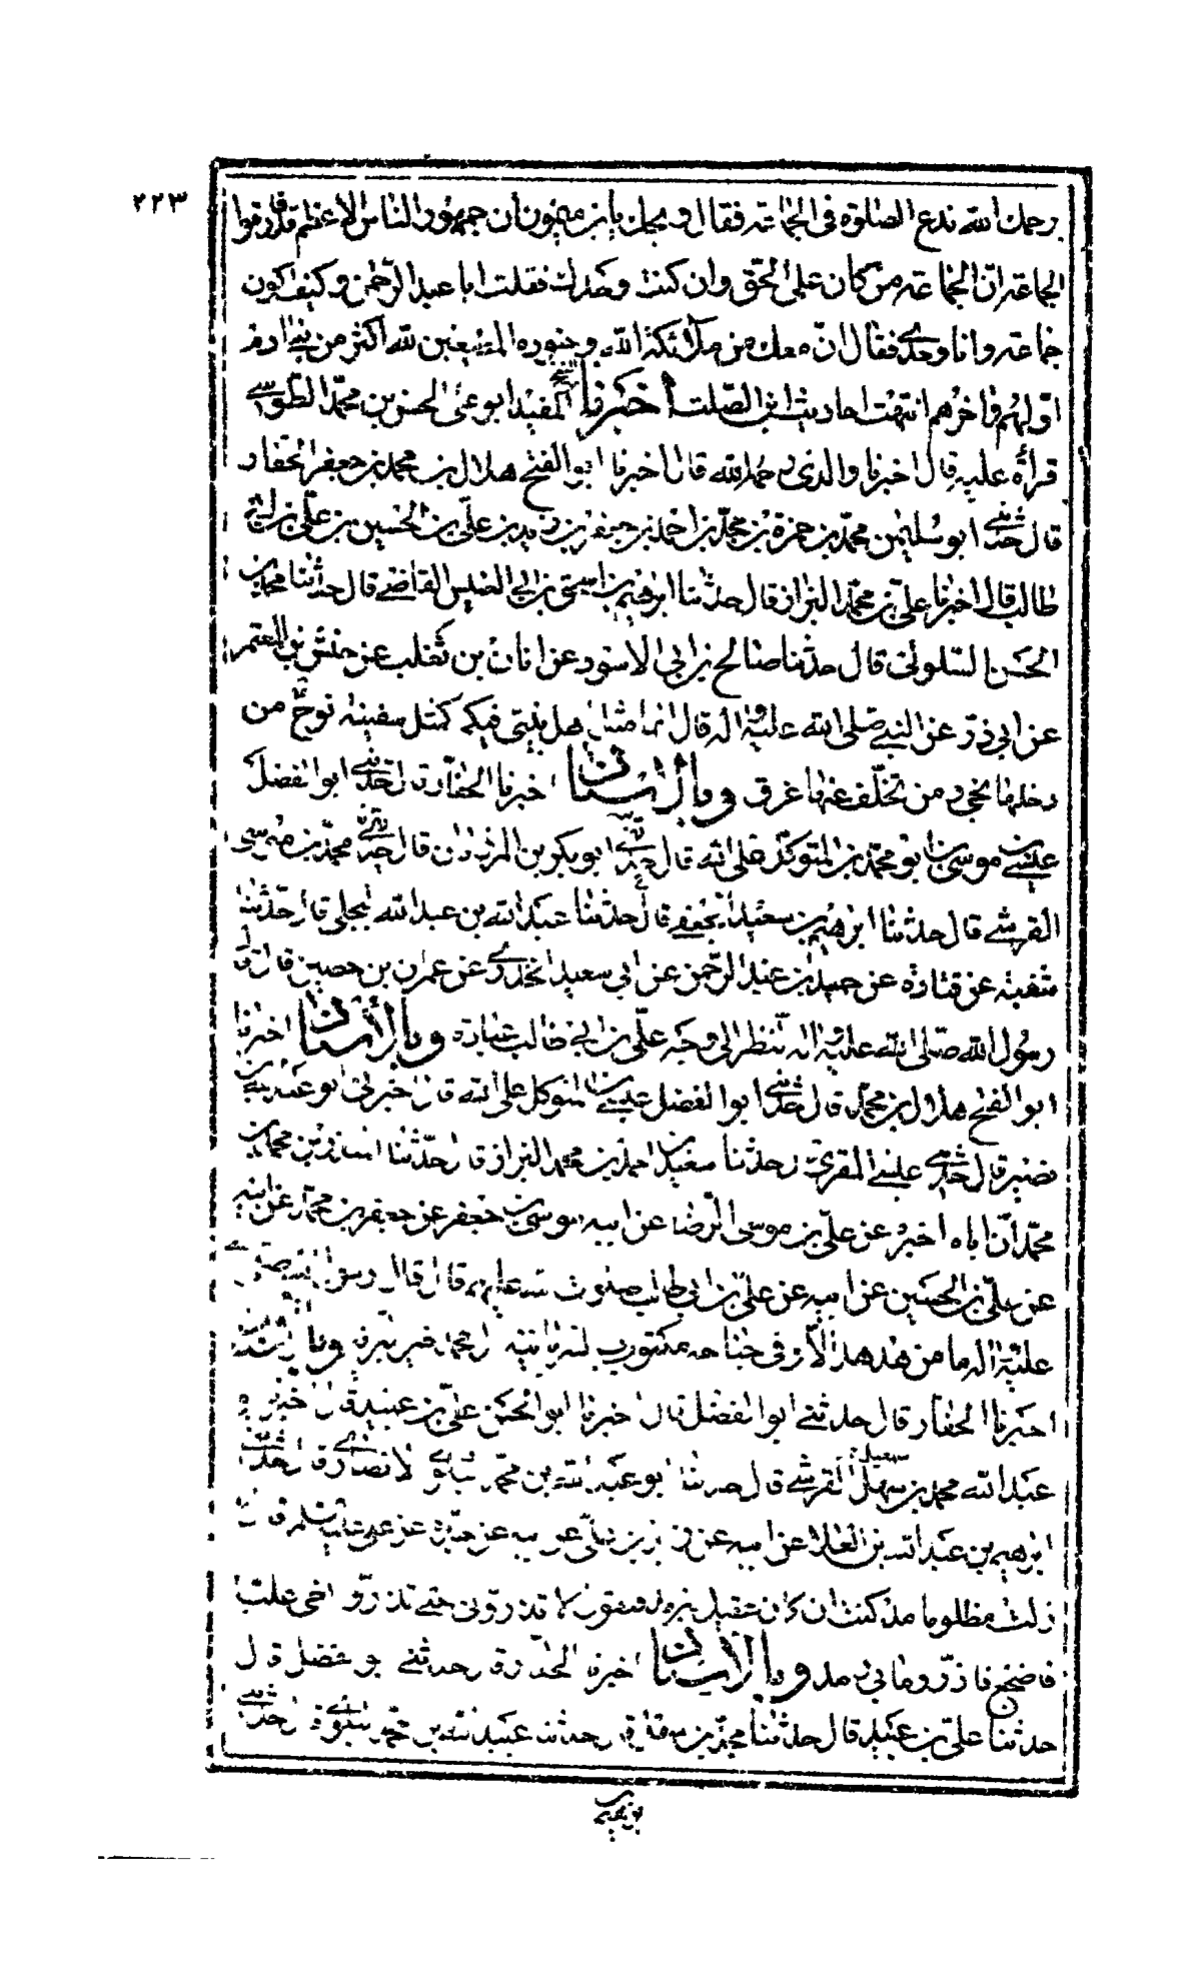 ٢٢٣
رحمك الله ندع الصلوة في الجماعة فقال ويحك يابن ميمون ان جمهور الناس الاعظم قد فارقوا
الجماعة ان الجماعة من كان على الحق وان كنت وحدك فقلت ابا عبد الرحمن وكيف اكون
جماعة وانا وحدي فقال ان معك من ملائكة الله وجنوده المطيعين لله اكثر من بني ادم
اولهم واخرهم انتهت احاديث ابن الصلت أخبرنا الشيخ المفيد ابو علي الحسن بن محمد الطوسي
قرأة عليه قال اخبرنا والدي رحمه الله قال اخبرنا ابو الفتح هلال بن محمد بن جعفر الحفار
قال حدثني ابو سليمن محمد بن حمزة بن محمد بن احمد بن جعفر بن زيد بن علي بن الحسين بن علي بن ابي
طالب قال اخبرنا علي بن محمد البزاز قال حدثنا ابرهيم بن اسحق بن ابي العنبس القاضي قال حدثنا محمد بن
الحسن السلولي قال حدثنا صالح بن ابي الاسود عن ابان بن تغلب عن حنش بن المعتمر
عن ابي ذر عن النبي صلى الله عليه واله قال انما مثل اهل بيتي فيكم كمثل سفينة نوح من
دخلها نجى ومن تخلف عنها غرق وبالاسناد اخبرنا الحفار قال حدثني ابو الفضل
عيسى بن موسى بن ابو محمد بن المتوكل على الله قال حدثني ابو بكر بن المرزبان قال حدثني محمد بن موسى
القرشي قال حدثنا ابرهيم بن سعيد الجعفي قال حدثنا عبد الله بن عبد الله البجلي قال حدثنا
شعبة عن قتادة عن حميد بن عبد الرحمن عن ابي سعيد الخدري عن عمران بن حصين قال قال
رسول الله صلى الله عليه واله النظر الى وجه علي بن ابي طالب عبادة وبالأسناد اخبرنا
ابو الفتح هلال بن محمد قال حدثني ابو الفضل عيسى بن المتوكل على الله قال اخبرني ابو عبد الله بن
نصير قال حدثني عيسى المقري قال حدثنا سعيد بن احمد بن محمد البزاز قال حدثنا المنذر بن محمد بن
محمد ان اباه اخبره عن علي بن موسى الرضا عن ابيه موسى بن جعفر عن جعفر بن محمد عن ابيه
عن علي بن الحسين عن ابيه عن علي بن ابي طالب صلوات الله عليهم قال قال رسول الله صلى
عليه واله ما من هدهد الا في جناحه مكتوب بالسريانية ال محمد خير البرية وبالأسناد
اخبرنا الحفار قال حدثني ابو الفضل قال اخبرنا ابو الحسن علي بن عبيد قال اخبرنا
عبد الله محمد بن سهل القرشي قال حدثنا ابو عبد الله بن محمد البلوي الانصاري قال حدثني
ابرهيم بن عبد الله بن العلا عن ابيه عن زيد بن علي عن ابيه عن جده عن علي عليه السلم قال
زلت مظلوما مذ كنت ان كان عقيل ليرمد فيقول لا تذروني حتى تذروا اخي عليا
فاضجع فاذر وما بي رمد وبالأسناد اخبرنا الحفار قال حدثني ابو الفضل قال
حدثنا علي بن عبيد قال حدثنا محمد بن سهل قال حدثنا عبد الله بن محمد البلوي قال حدثني